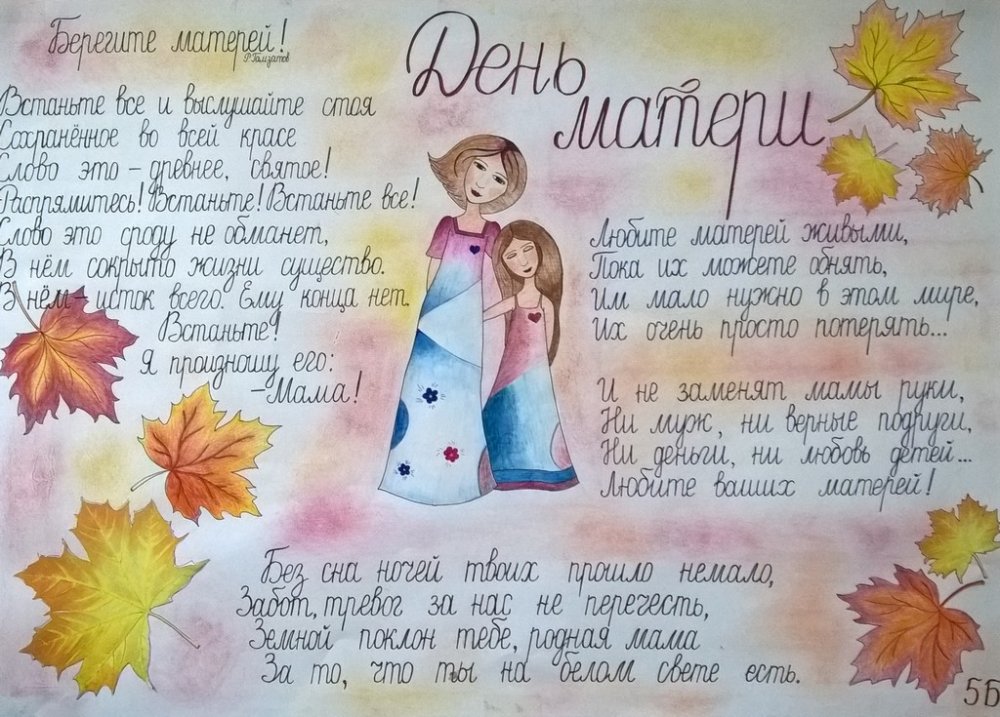 День
матери
Берегите матерей!
Р.Гамзатов
Встаньте все и выслушайте стоя
Сохранённое во всей красе
Слово это – древнее, святое!
Распрямитесь! Встаньте! Встаньте все!
Слово это сроду не обманет,
В нём сокрыто жизни существо.
В нём – исток всего. Ему конца нет.
Встаньте!
Я произношу его:
– Мама!
Любите матерей живыми,
Пока их можете обнять,
Им мало нужно в этом мире,
Их очень просто потерять...
И не заменят мамы руки,
Ни муж, ни верные подруги,
Ни деньги, ни любовь детей...
Любите ваших матерей!
Без сна ночей твоих прошло немало,
Забот, тревог за нас не перечесть,
Земной поклон тебе, родная мама
За то, что ты на белом свете есть.
5Б